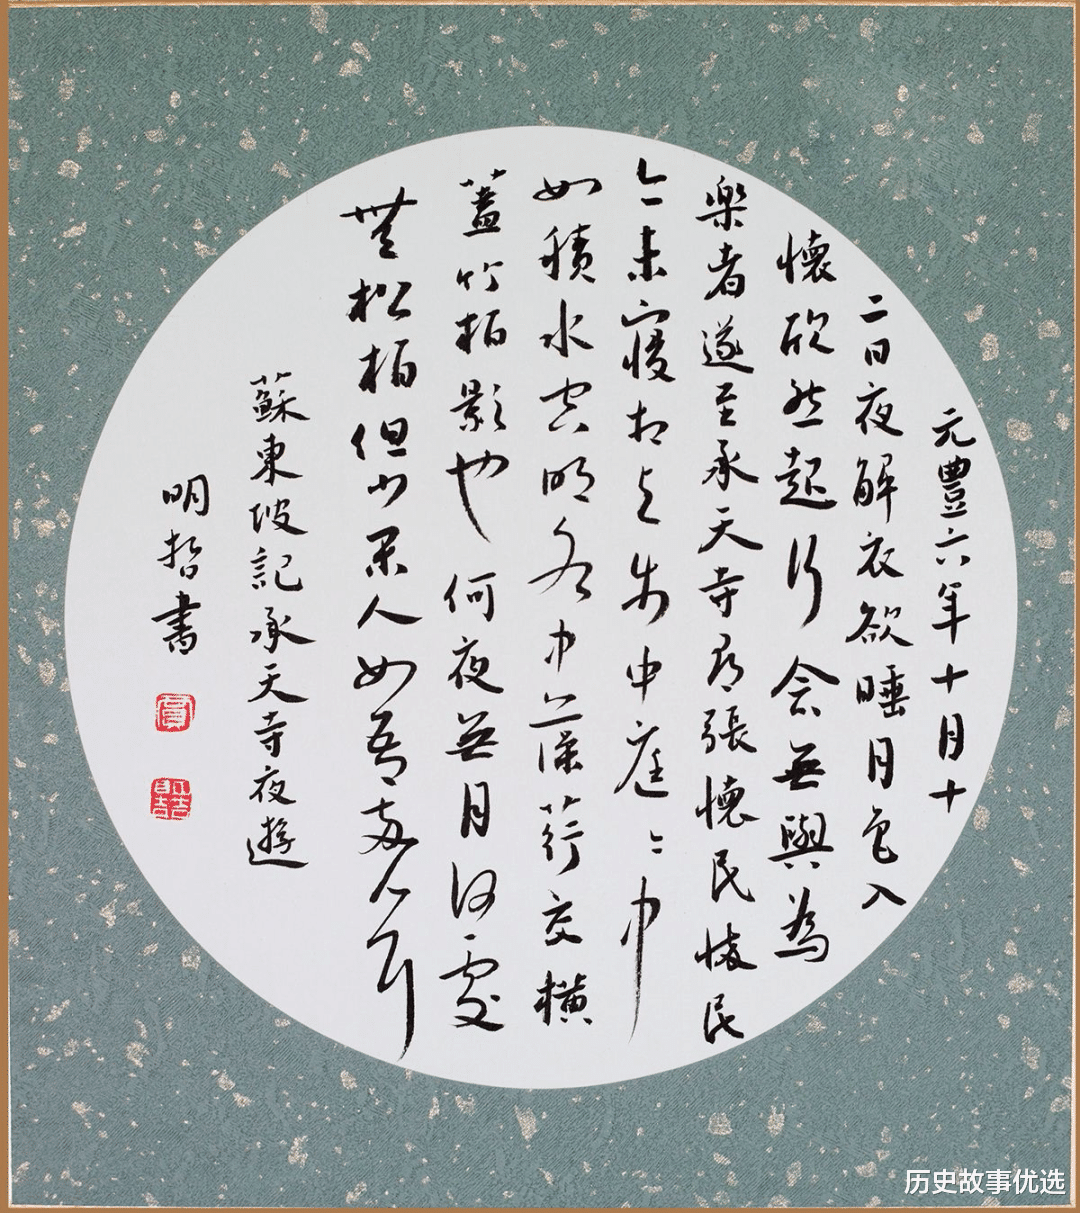 元豐六年十月十
二日夜解衣欲睡月色入
懷欣然起行念無與為
樂者遂至承天寺尋張懷民懷民
亦未寢相与步中庭〻中
如積水空明水中藻荇交橫
蓋竹柏影也何夜無月何處
無松柏但少閑人如吾兩人耳
蘇東坡記承天寺夜遊
明哲書
历史故事优选